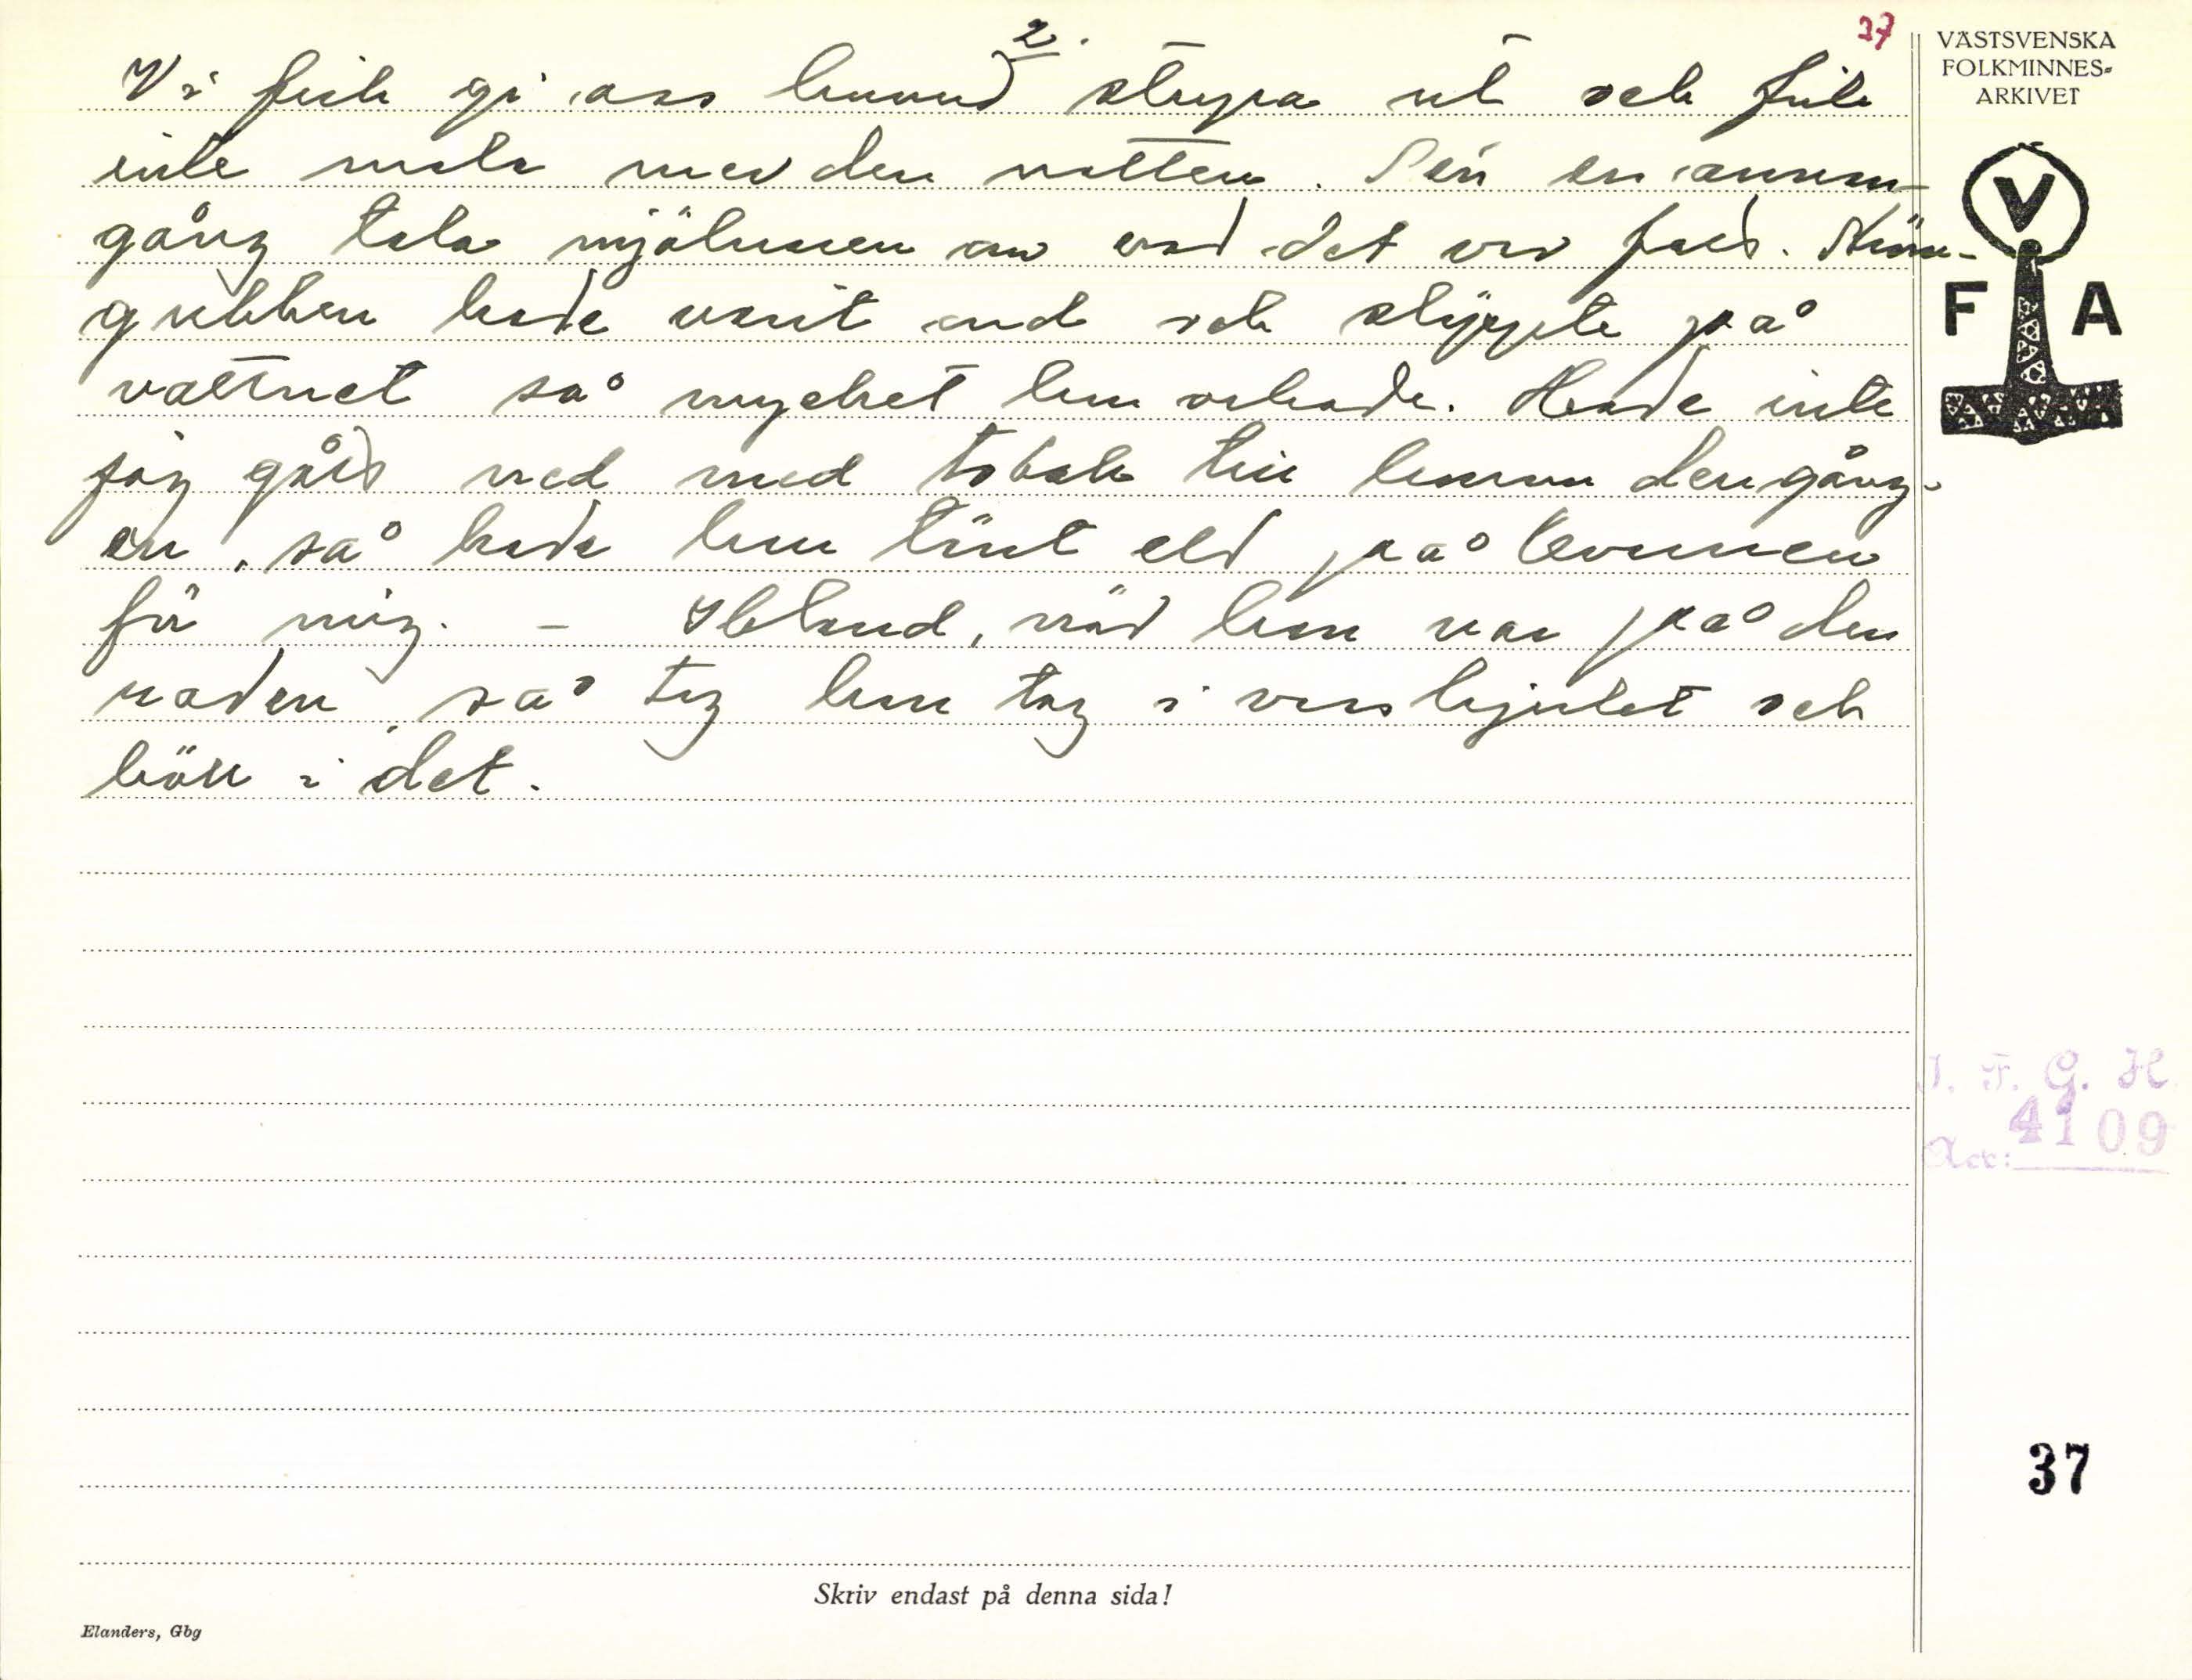 2.
37
Vi fick gi oss hemmåt strypa ut och fick
inte mala mer den natten. Sen en annan
gång tala mjölnaren om vad det var fatt. Kvarn-
gubben hade varit ond och släppte på
vattnet så mycket han orkade. Hade inte
jag gått ned med tobak till honom den gång-
en, så hade han tänt eld på kvarnen
för mig. – Ibland, när han var på den
raden, så tog han tag i vasshjulet och
höll i det.
VÄSTSVENSKA
FOLKMINNES-
ARKIVET
V
F A
I. F. G. H.
Acc: 4109
37
Skriv endast på denna sida!
Elanders, Gbg